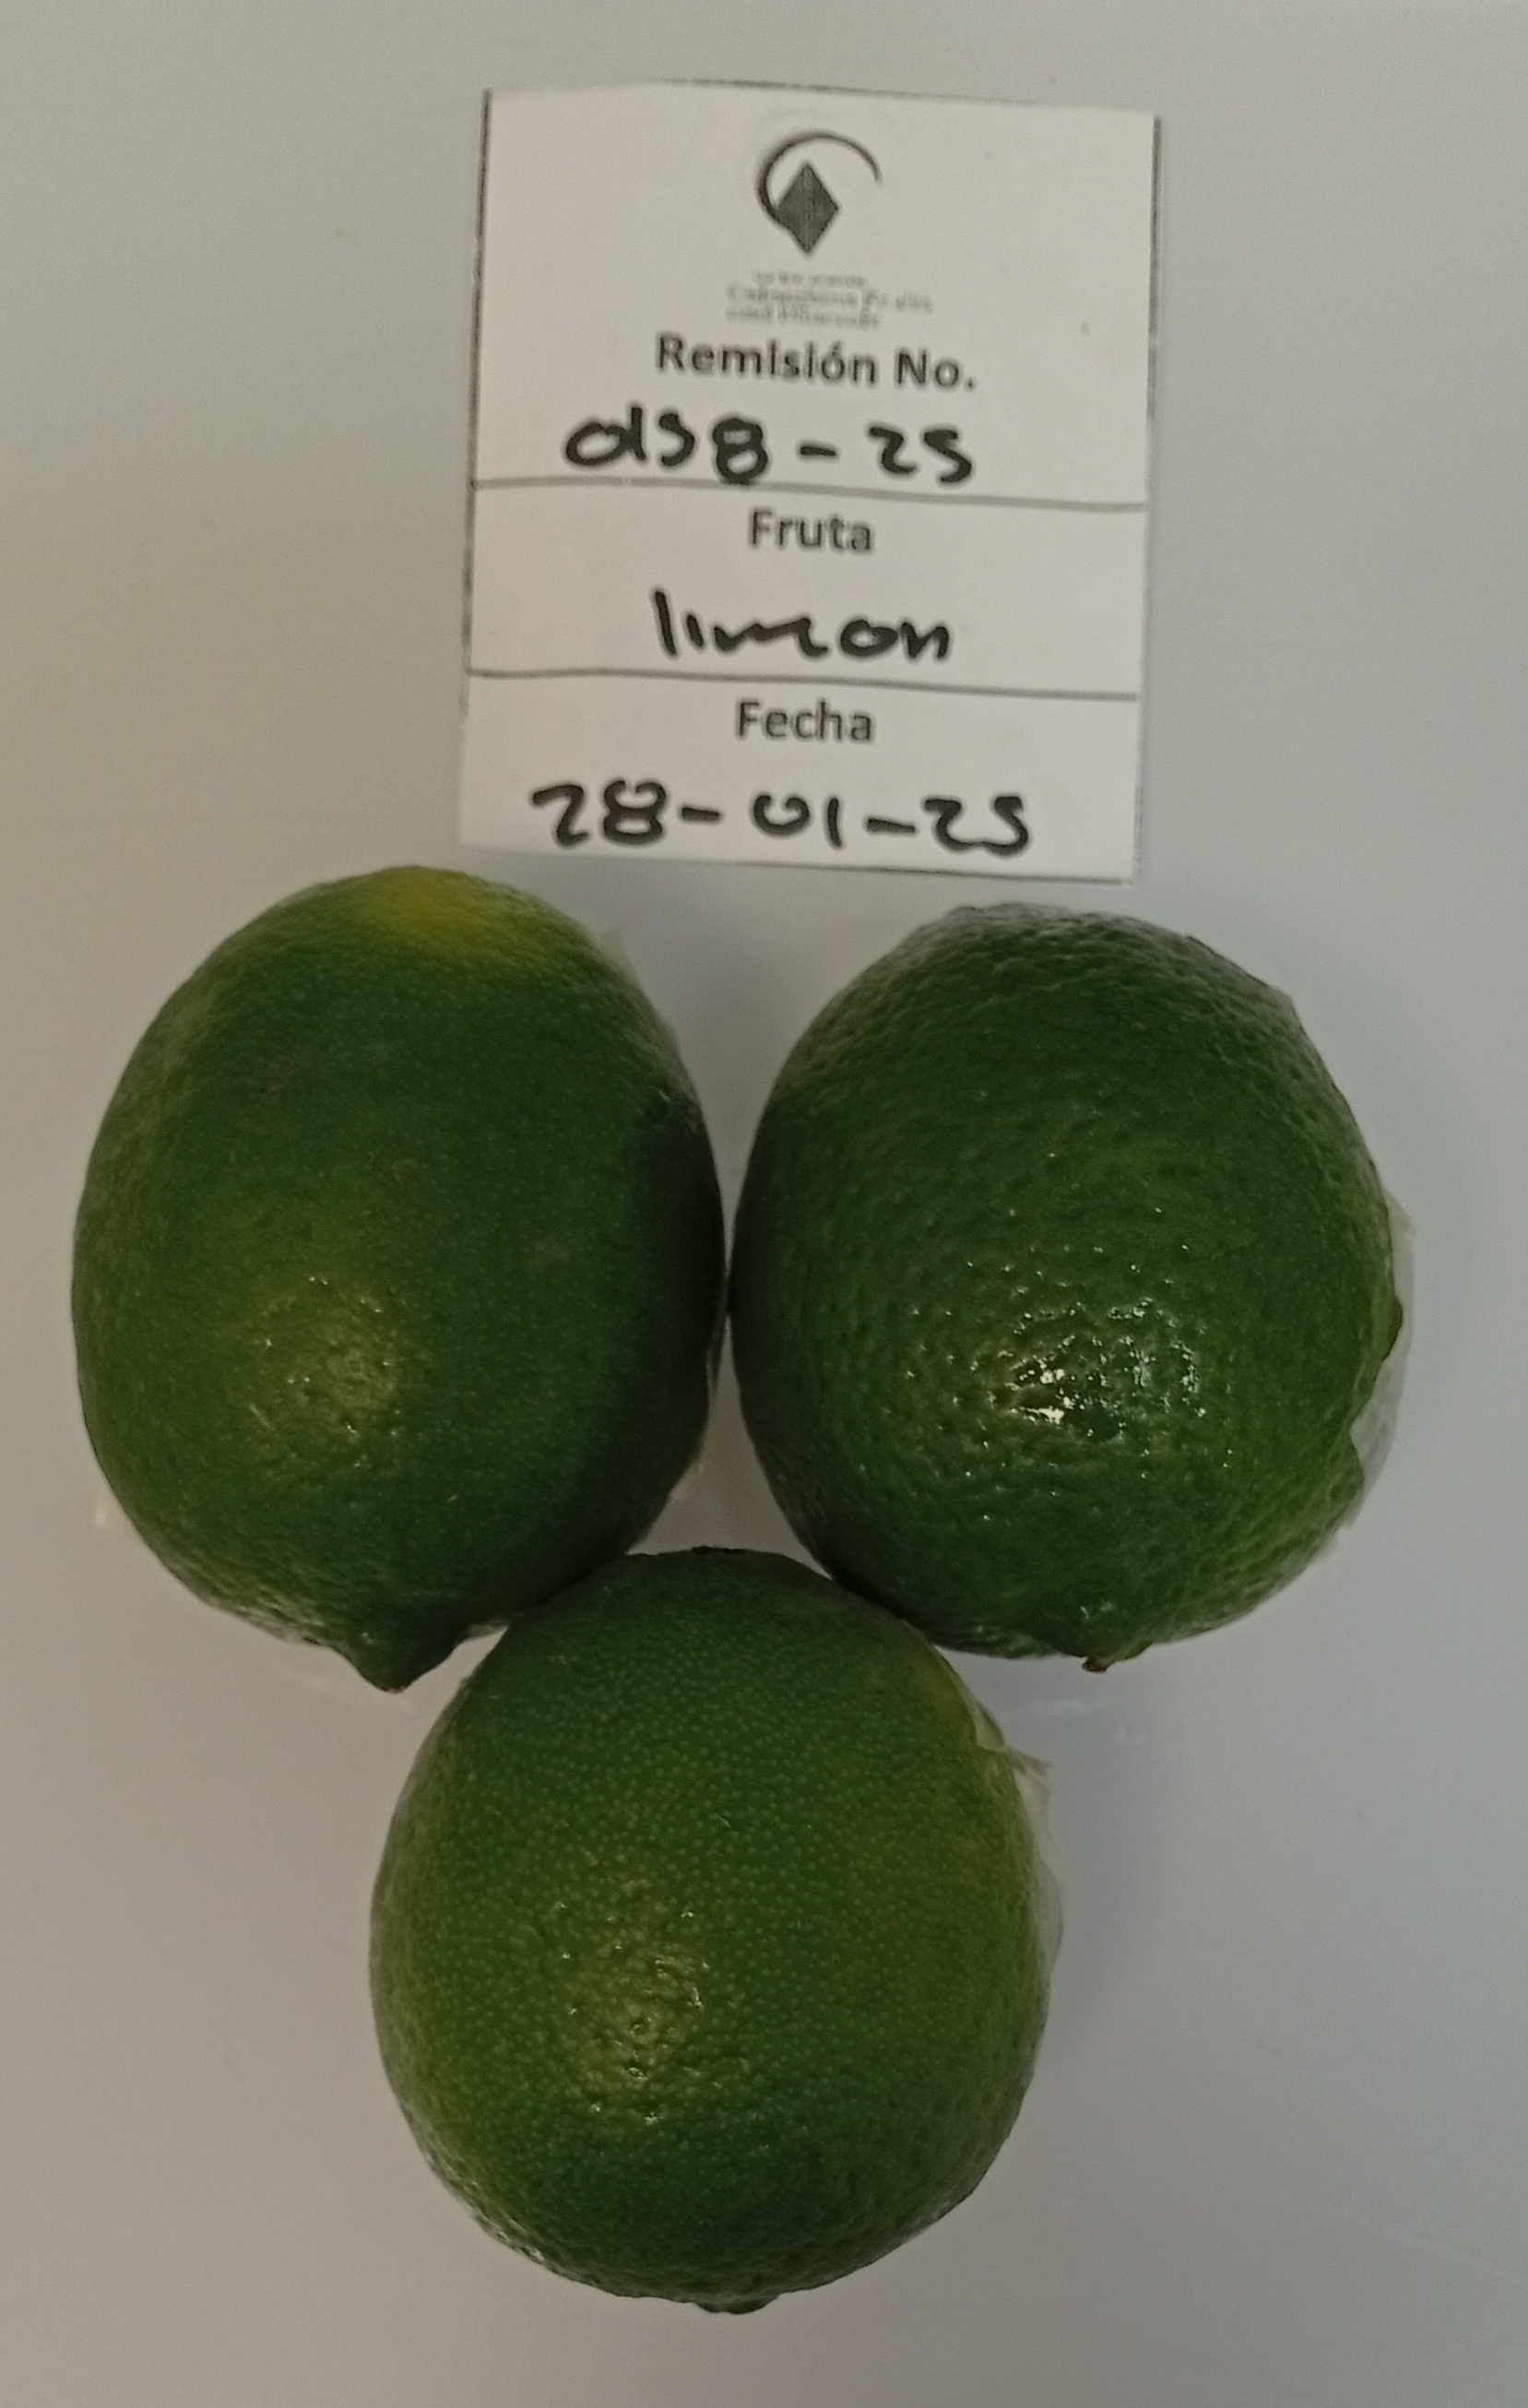 Remisión No.
0158-25
Fruta
limon
Fecha
28-01-25